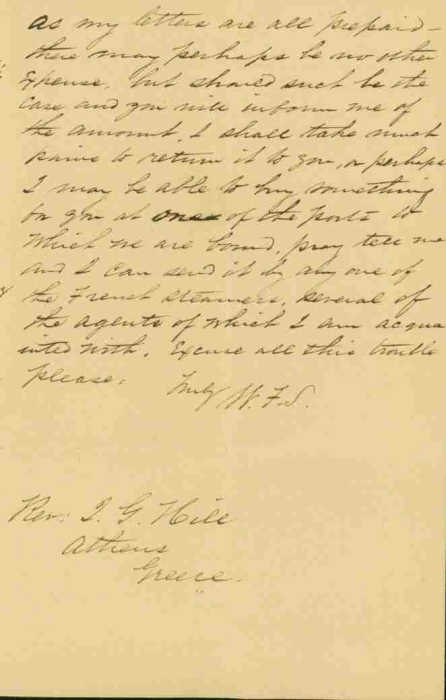 as my letters are all prepaid –
there may perhaps be no other
Expense, but should such be the
case and you will inform me of
the amount, I shall take much
pains to return it to you, or perhaps
I may be able to buy something
for you at one of the ports to
which we are bound, pray tell me
and I can send it by any one of
the French steamers, several of
the agents of which I am acqua
inted with. Excuse all this trouble
please.
Truly W. F. S.
Rev: J. G. Hill
Athens
Greece.